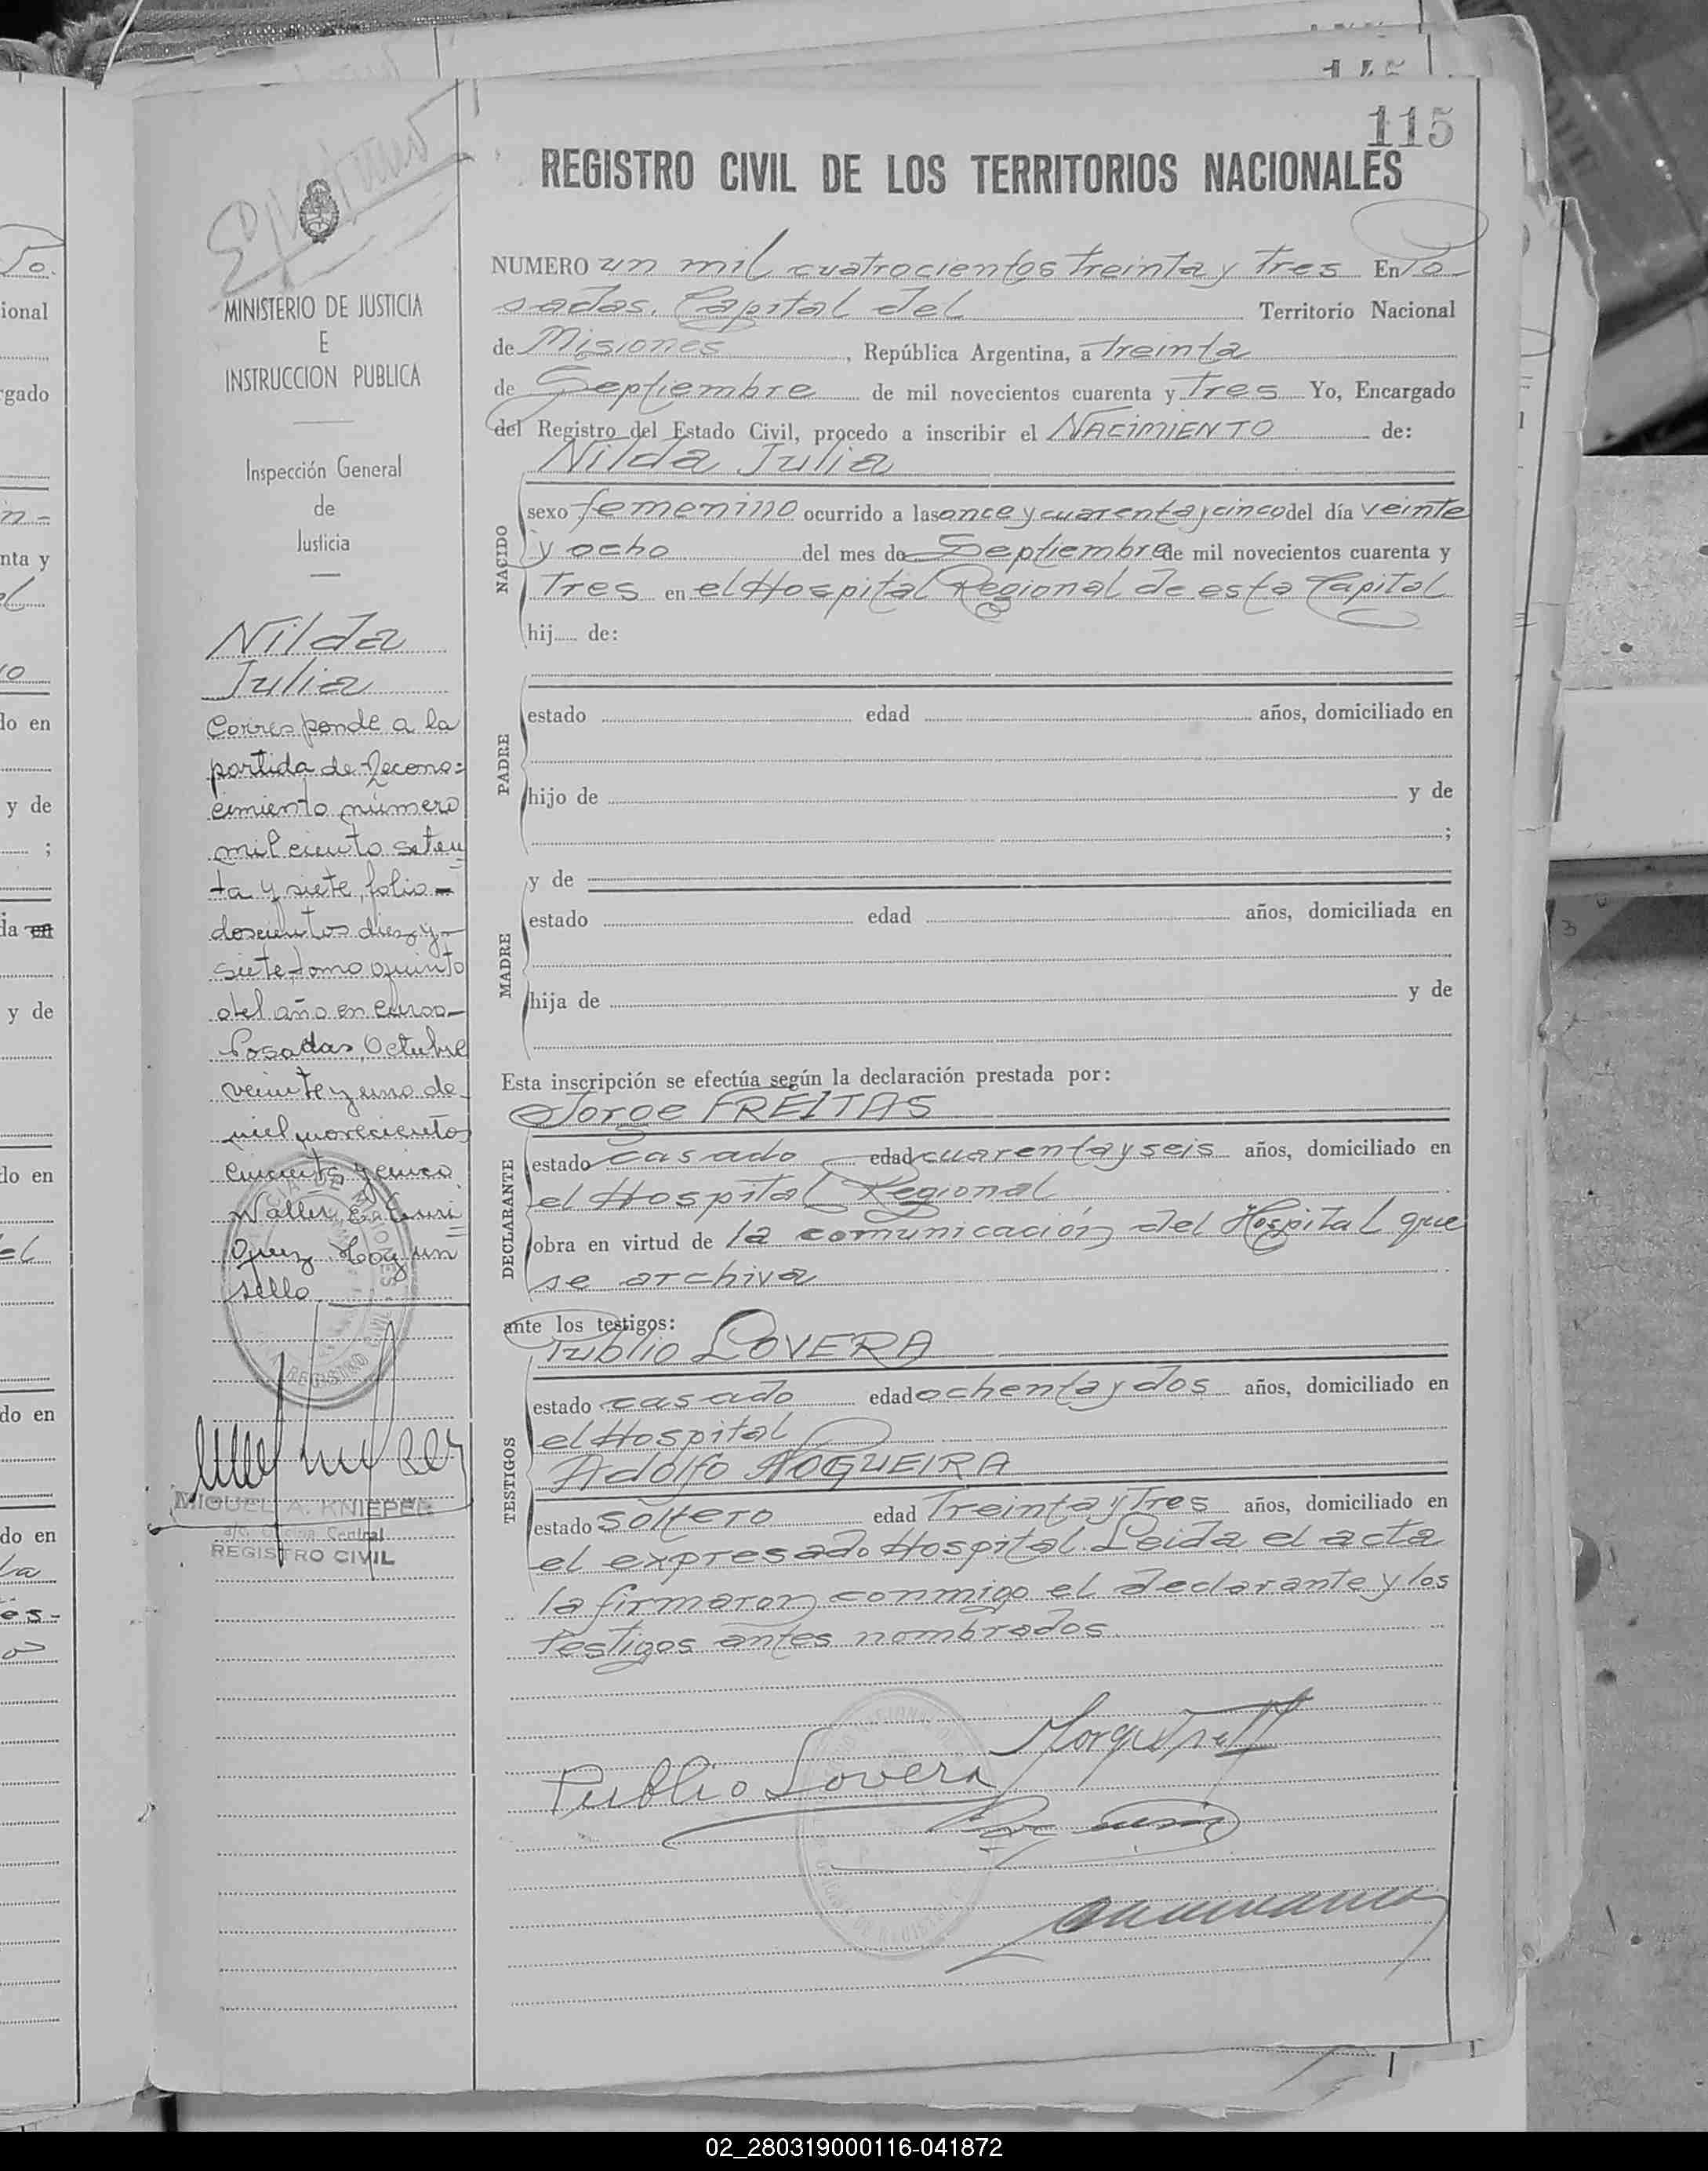 115
REGISTRO CIVIL DE LOS TERRITORIOS NACIONALES
MINISTERIO DE JUSTICIA
E
INSTRUCCION PUBLICA
Inspección General
de
Justicia
Nilda
Julia
Corresponde a la
partida de recono=
cimiento número
mil ciento seten
ta y siete, folio
doscientos diez y
siete tomo quinto
del año en curso
Posadas, Octubre
veinte y uno de
mil novecientos
cincuenta y cinco.
Hay un
sello.
MIGUEL A. KNIEPER
a/c. Oficina Central
REGISTRO CIVIL
NUMERO un mil cuatrocientos treinta y tres En Po-
sadas, Capital del Territorio Nacional
de Misiones, República Argentina, a treinta
de Septiembre de mil novecientos cuarenta y tres Yo, Encargado
del Registro del Estado Civil, procedo a inscribir el NACIMIENTO de:
Nilda Julia
NACIDO
sexo femenino ocurrido a las once y cuarenta y cinco del día veinte
y ocho del mes de Septiembre de mil novecientos cuarenta y
tres en el Hospital Regional de esta Capital
hij..... de:
PADRE
estado edad años, domiciliado en
hijo de y de
;
y de
MADRE
estado edad años, domiciliada en
hija de y de
Esta inscripción se efectúa según la declaración prestada por:
Jorge FREITAS
DECLARANTE
estado casado edad cuarenta y seis años, domiciliado en
el Hospital Regional
obra en virtud de la comunicación del Hospital que
se archiva
ante los testigos:
Publio LOVERA
TESTIGOS
estado casado edad ochenta y dos años, domiciliado en
el Hospital
Adolfo NOGUEIRA
estado soltero edad treinta y tres años, domiciliado en
el expresado Hospital. Leida el acta
la firmaron conmigo el declarante y los
testigos antes nombrados.
Publio Lovera
02_280319000116-041872